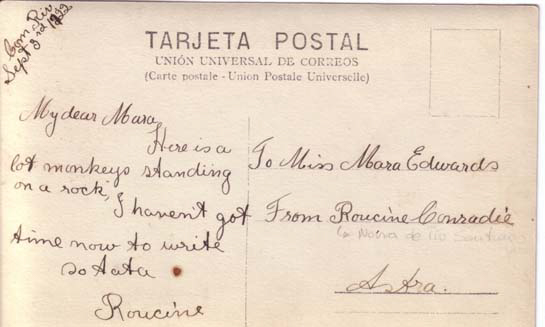 Com Riv
Sept 3rd 1922
TARJETA POSTAL
UNIÓN UNIVERSAL DE CORREOS
(Carte postale - Union Postale Universelle)
My dear Mara
Here is a
lot monkeys standing
on a rock,
I haven't got
time now to write
so tata
Roucine
To Miss Mara Edwards
From Roucine Conradie
de Río Santiago
Astra.